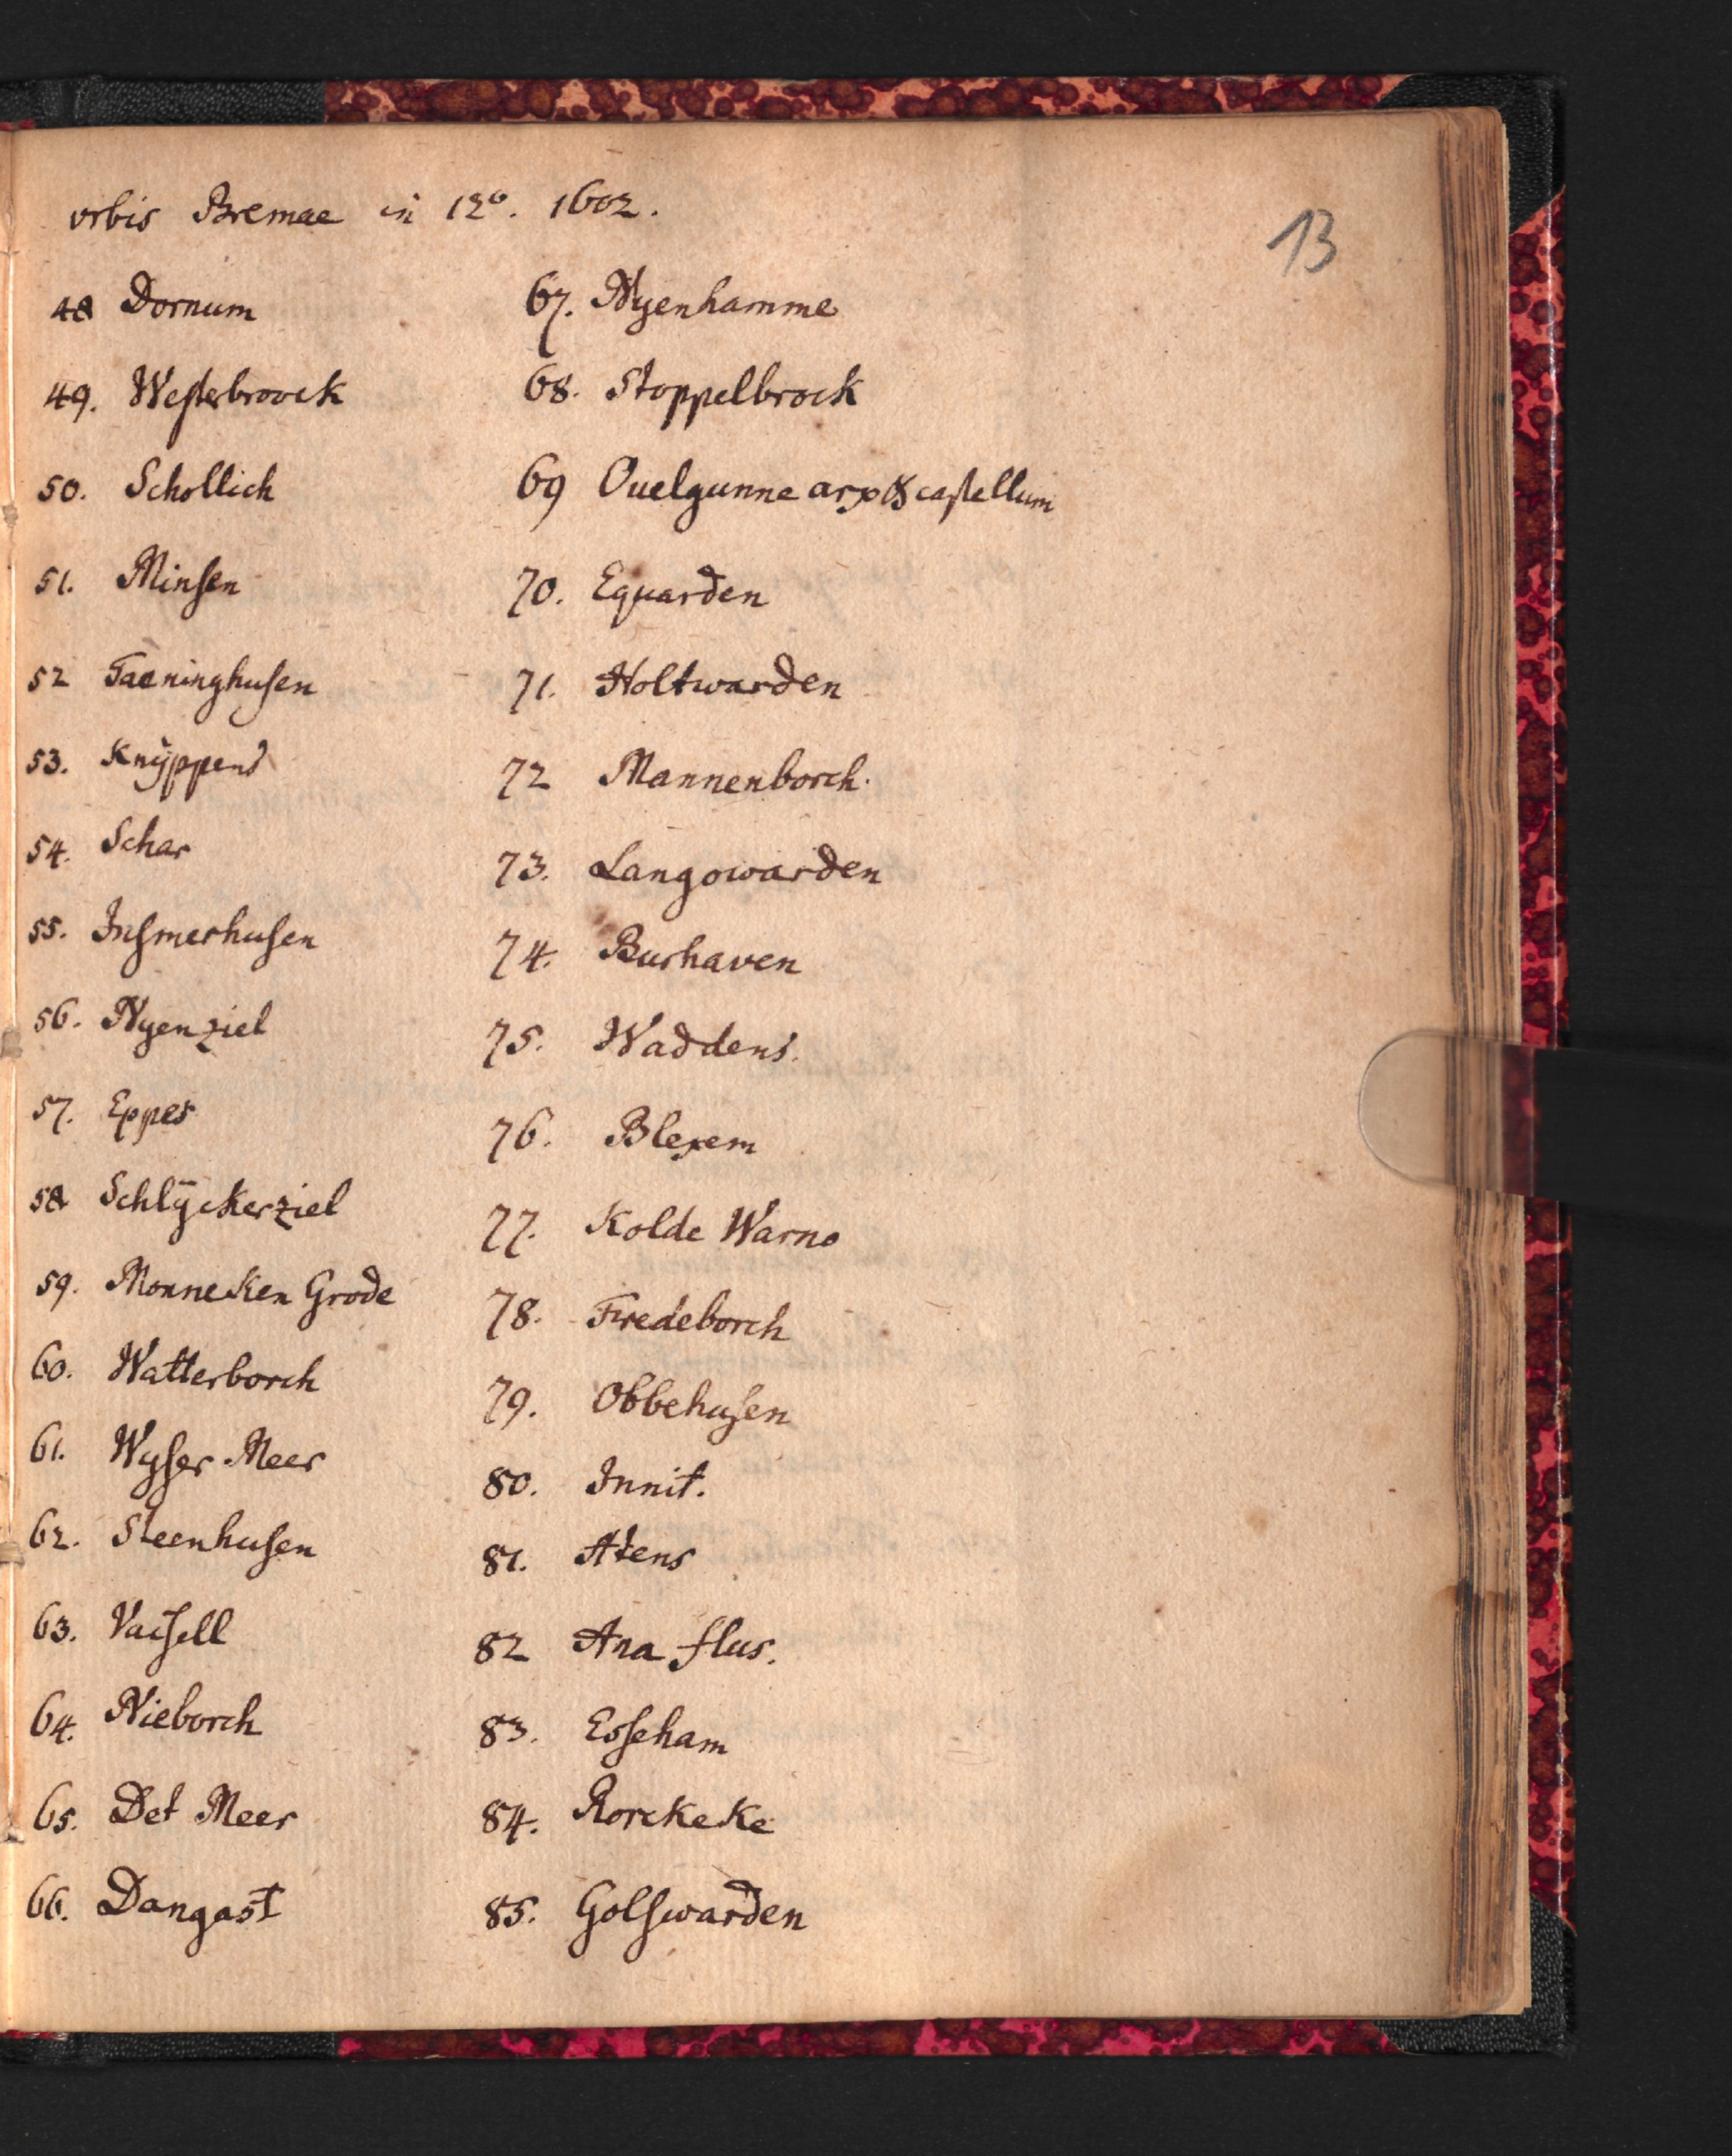 orbis Bremae in 12°. 1602.
13
48 Dornum
49. Westerbroock
50. Schollich
51. Minsen
52 Taeninghusen
53. Knÿppens
54. Schar
55. Insmerhusen
56. Nyenziel
57. Eppes
58 Schlÿckerziel
59. Monneken Grode
60. Watterborch
61. Wyser Meer
62. Steenhusen
63. Varsell
64. Nieborch
65. Det Meer
66. Dangast
67. Nyenhamme
68. Stoppelbrock
69 Ouelgunne arx & castellum
70. Equarden
71. Holtwarden
72 Mannenborch.
73. Langowarden
74. Burhaven
75. Waddens.
76. Blexem
77. Kolde Warno
78. Fredeborch
79. Obbehusen
80. Innit.
81. Atens
82 Ana flus.
83. Esseham
84. Rorckeke
85. Golswarden